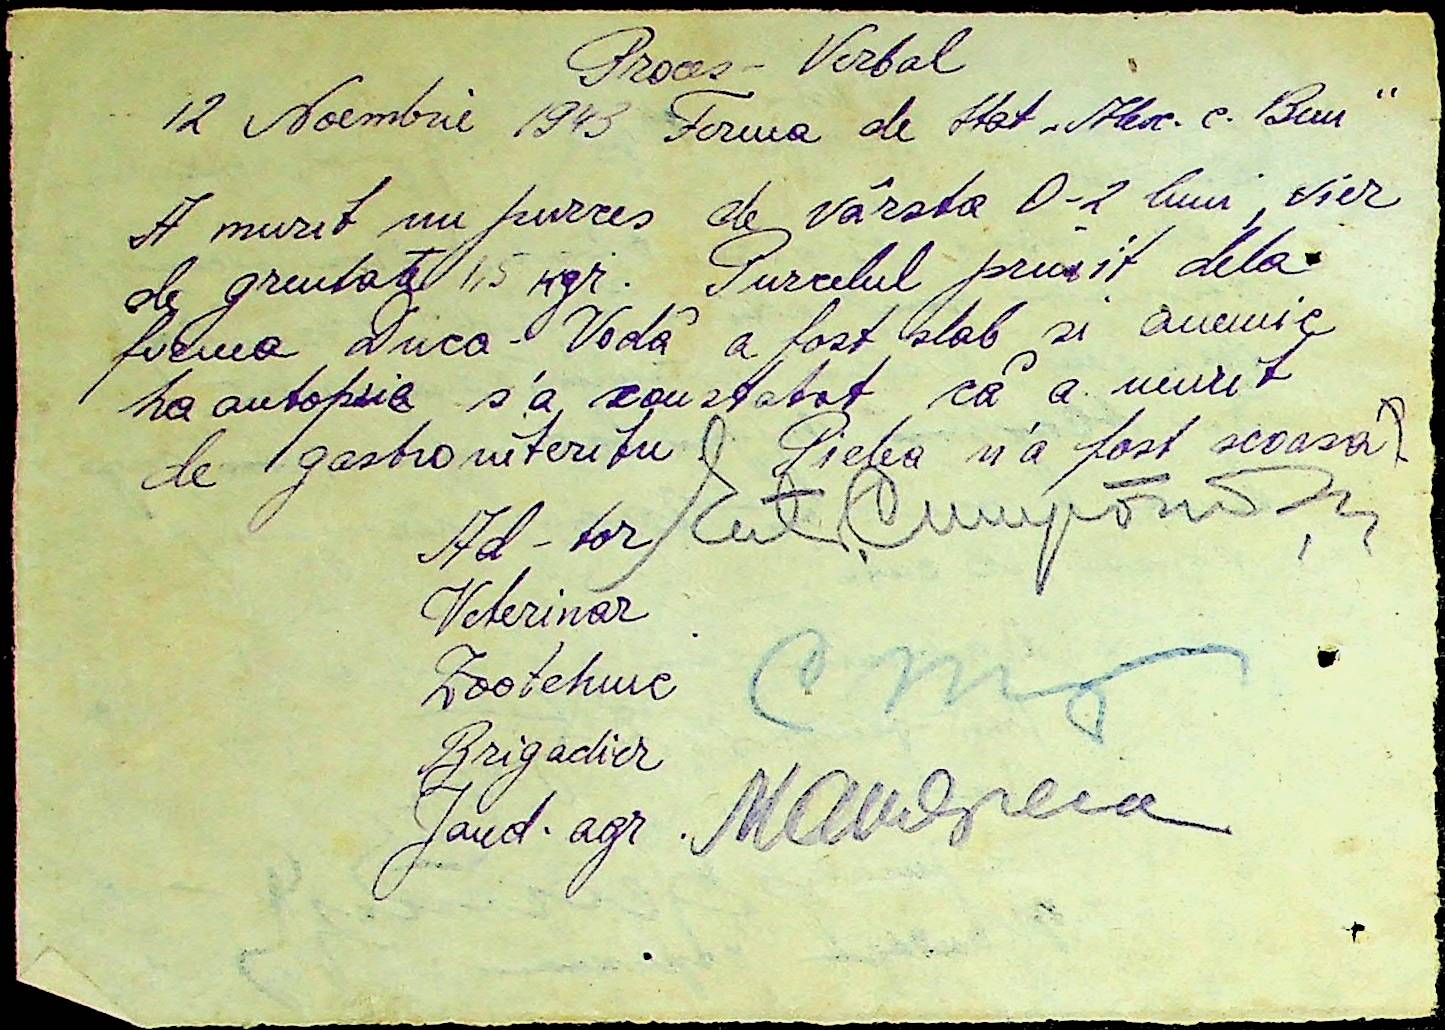 Proces - Verbal
12 Noembrie 1943 Ferma de Stat „Alex. c. Bun"
A murit un purces de vârsta 0-2 luni, vier
de greutate 1,5 kgr. Purcelul primit dela
ferma Duca - Vodă a fost slab si anemic
La autopsia s'a constatat că a murit
de gastroenterita. Pielea n'a fost scoasă
Ad - tor
Veterinar
Zootehnic
Brigadier
Jand. agr.